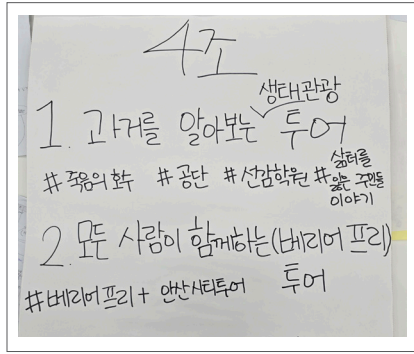 4조
1. 과거를 알아보는 생태관광 투어
#죽음의 호수 #공단 #선감학원 #삶터를 잃은 주민들 이야기
2. 모든 사람이 함께하는(베리어 프리) 투어
#베리어프리 + 안산시티투어